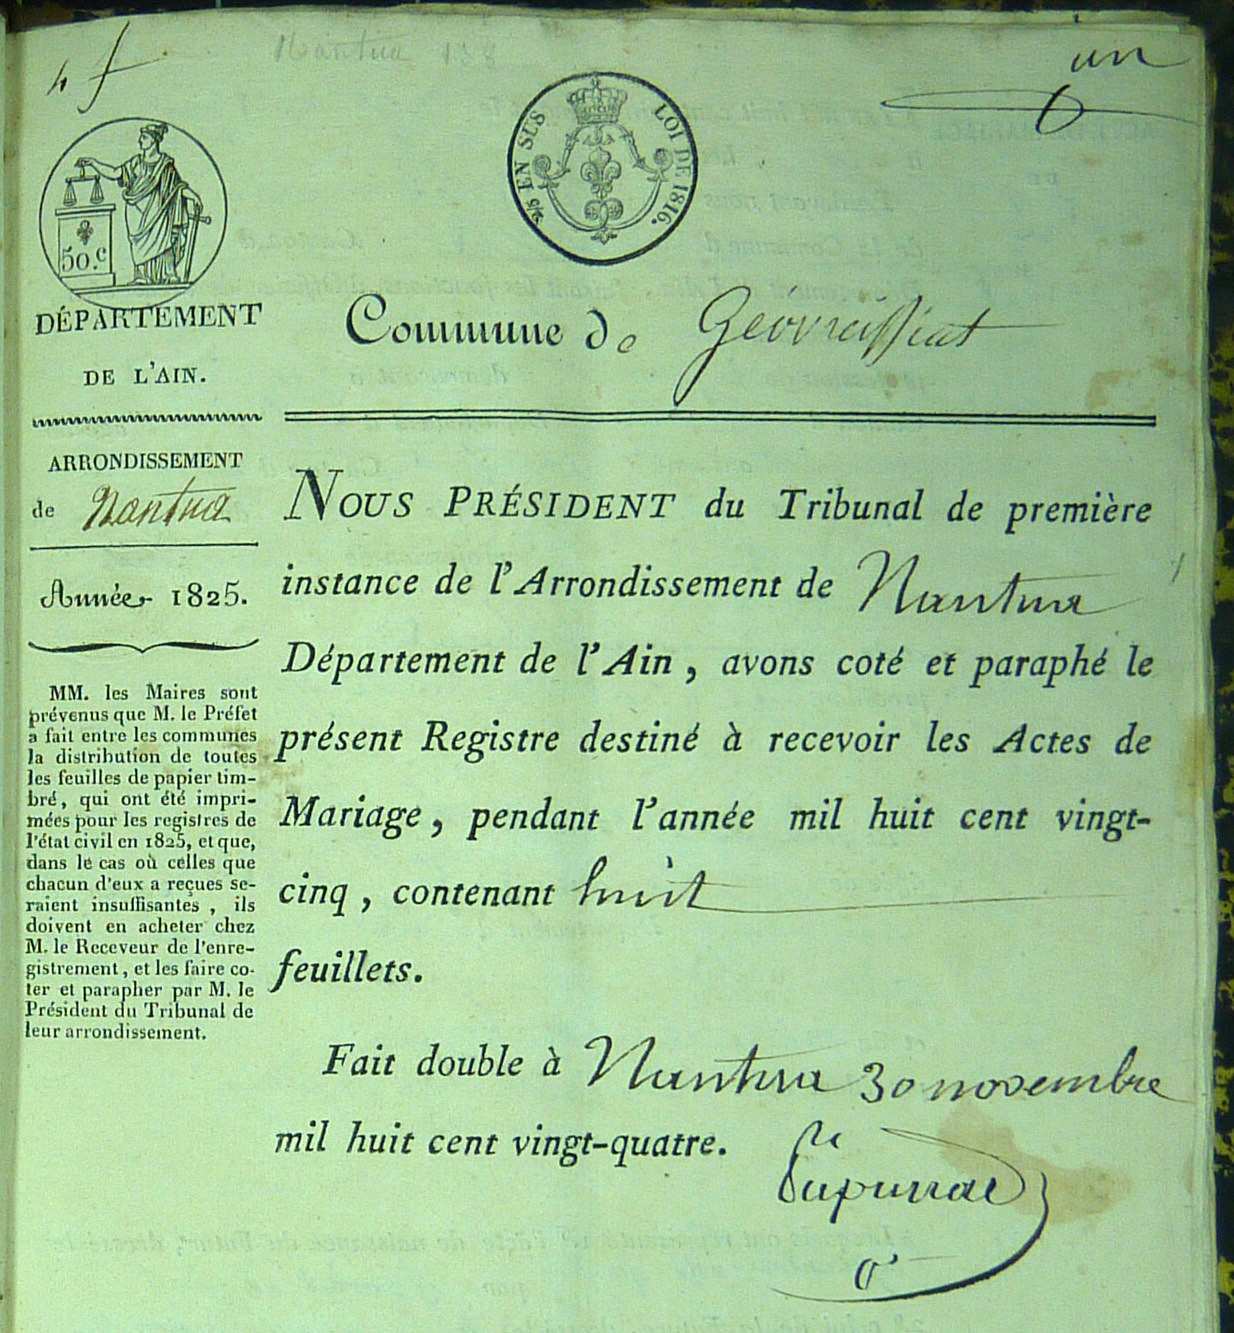 4 f
Nantua 138
un
50.c
2/5 EN SUS
LOI DE 1816.
DÉPARTEMENT
DE L'AIN.
Commune de Géovreissiat
ARRONDISSEMENT
de Nantua
Année 1825.
MM. les Maires sont
prévenus que M. le Préfet
a fait entre les communes
la distribution de toutes
les feuilles de papier tim-
bré, qui ont été impri-
mées pour les registres de
l'état civil en 1825, et que,
dans le cas où celles que
chacun d'eux a reçues se-
raient insuffisantes, ils
doivent en acheter chez
M. le Receveur de l'enre-
gistrement, et les faire co-
ter et parapher par M. le
Président du Tribunal de
leur arrondissement.
NOUS PRÉSIDENT du Tribunal de première
instance de l'Arrondissement de Nantua
Département de l'Ain, avons coté et paraphé le
présent Registre destiné à recevoir les Actes de
Mariage, pendant l'année mil huit cent vingt-
cinq, contenant huit
feuillets.
Fait double à Nantua 30 novembre
mil huit cent vingt-quatre.